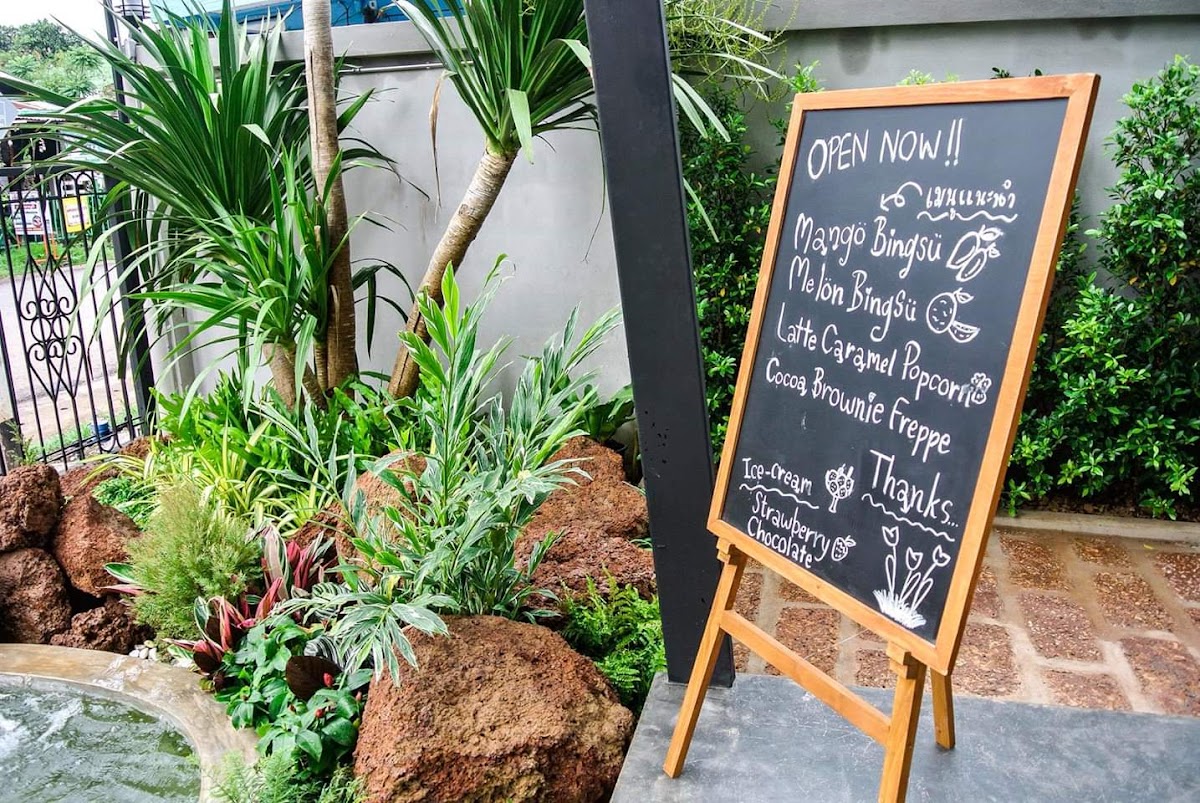 OPEN NOW!!
เมนูแนะนำ
Mangö Bingsü
Melön BingSü
Latte Caramel Popcorn
Cocoa Brownie Freppe
Ice-cream
Strawberry
Chocolate
Thanks...